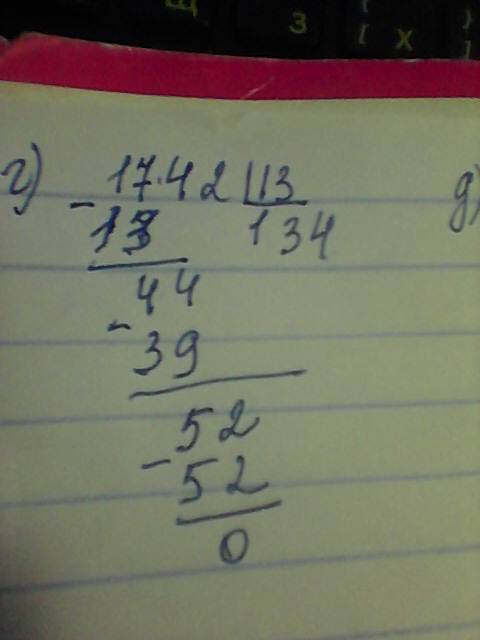 щ з [ х ) ]
г) 17.42 |13 д)
- 13 134
44
- 39
52
- 52
0